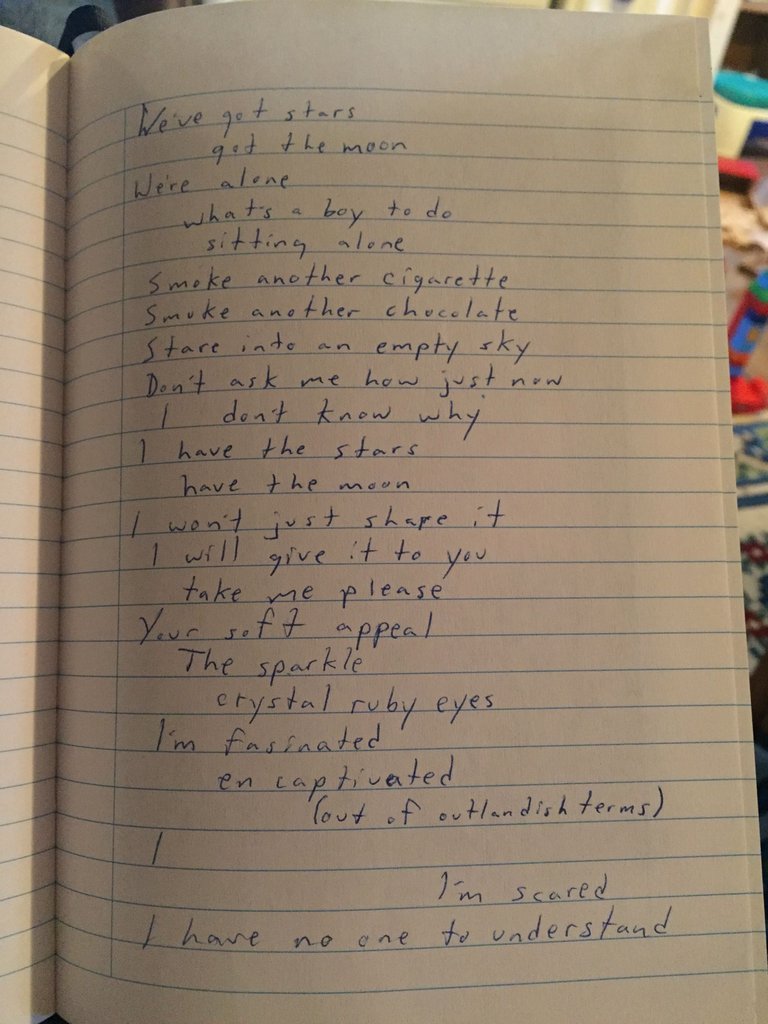 We've got stars
got the moon
We're alone
what's a boy to do
sitting alone
Smoke another cigarette
Smoke another chocolate
Stare into an empty sky
Don't ask me how just now
I don't know why
I have the stars
have the moon
I won't just shape it
I will give it to you
take me please
Your soft appeal
The sparkle
crystal ruby eyes
I'm fasinated
en captivated
(out of outlandish terms)
I
I'm scared
I have no one to understand